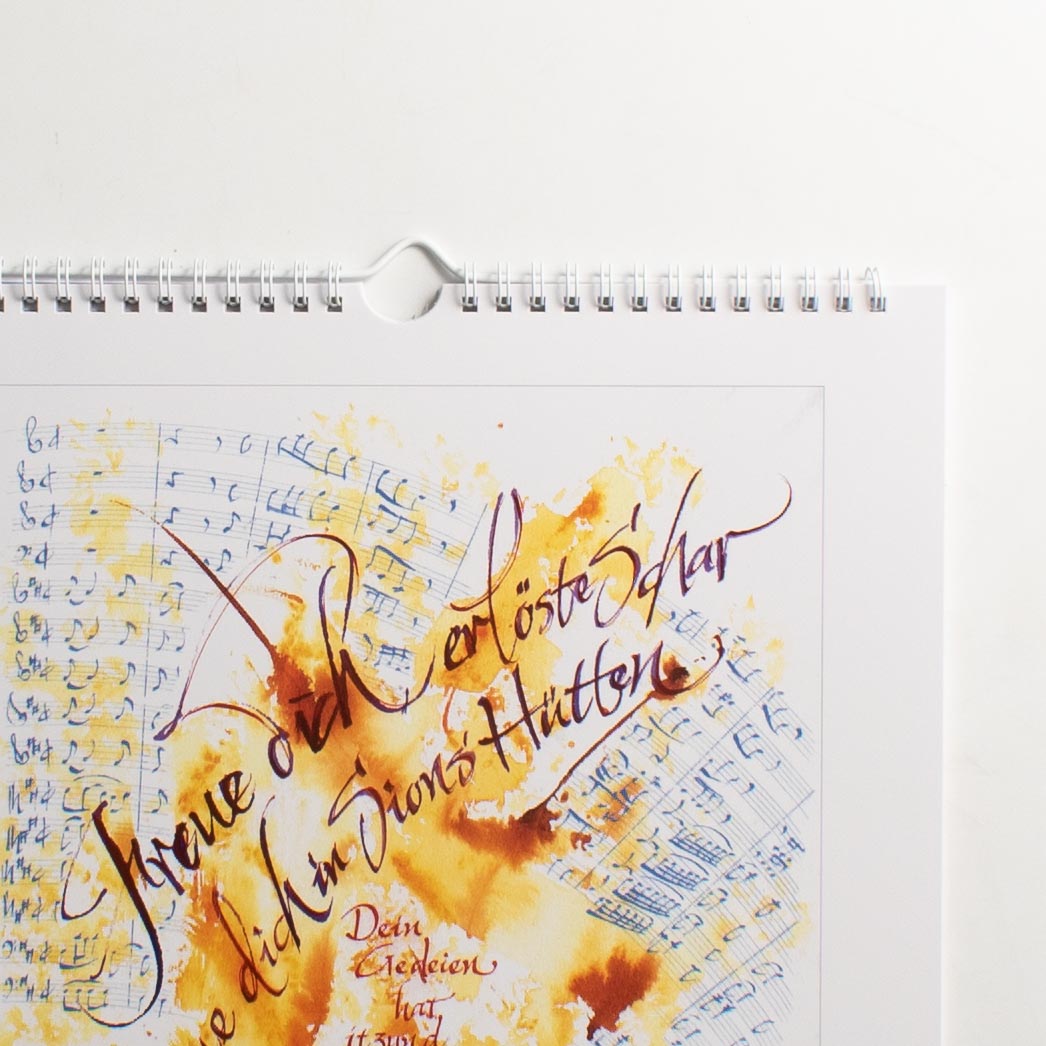 Freue dich erlöste Schar
dich in Sions Hütten
Dein
Gedeien
hat
itzund